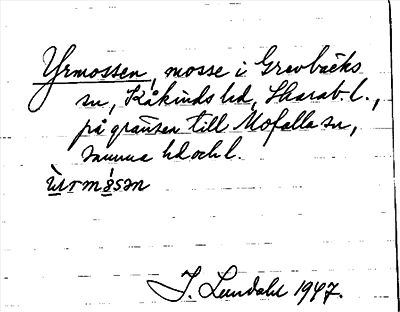 Yrmossen, mosse i Grevbäcks
sn, Kåkinds hd, Skarab. l.,
på gränsen till Mofalla sn,
samma hd och l.
ỳrmósən
I. Lundahl 1947.